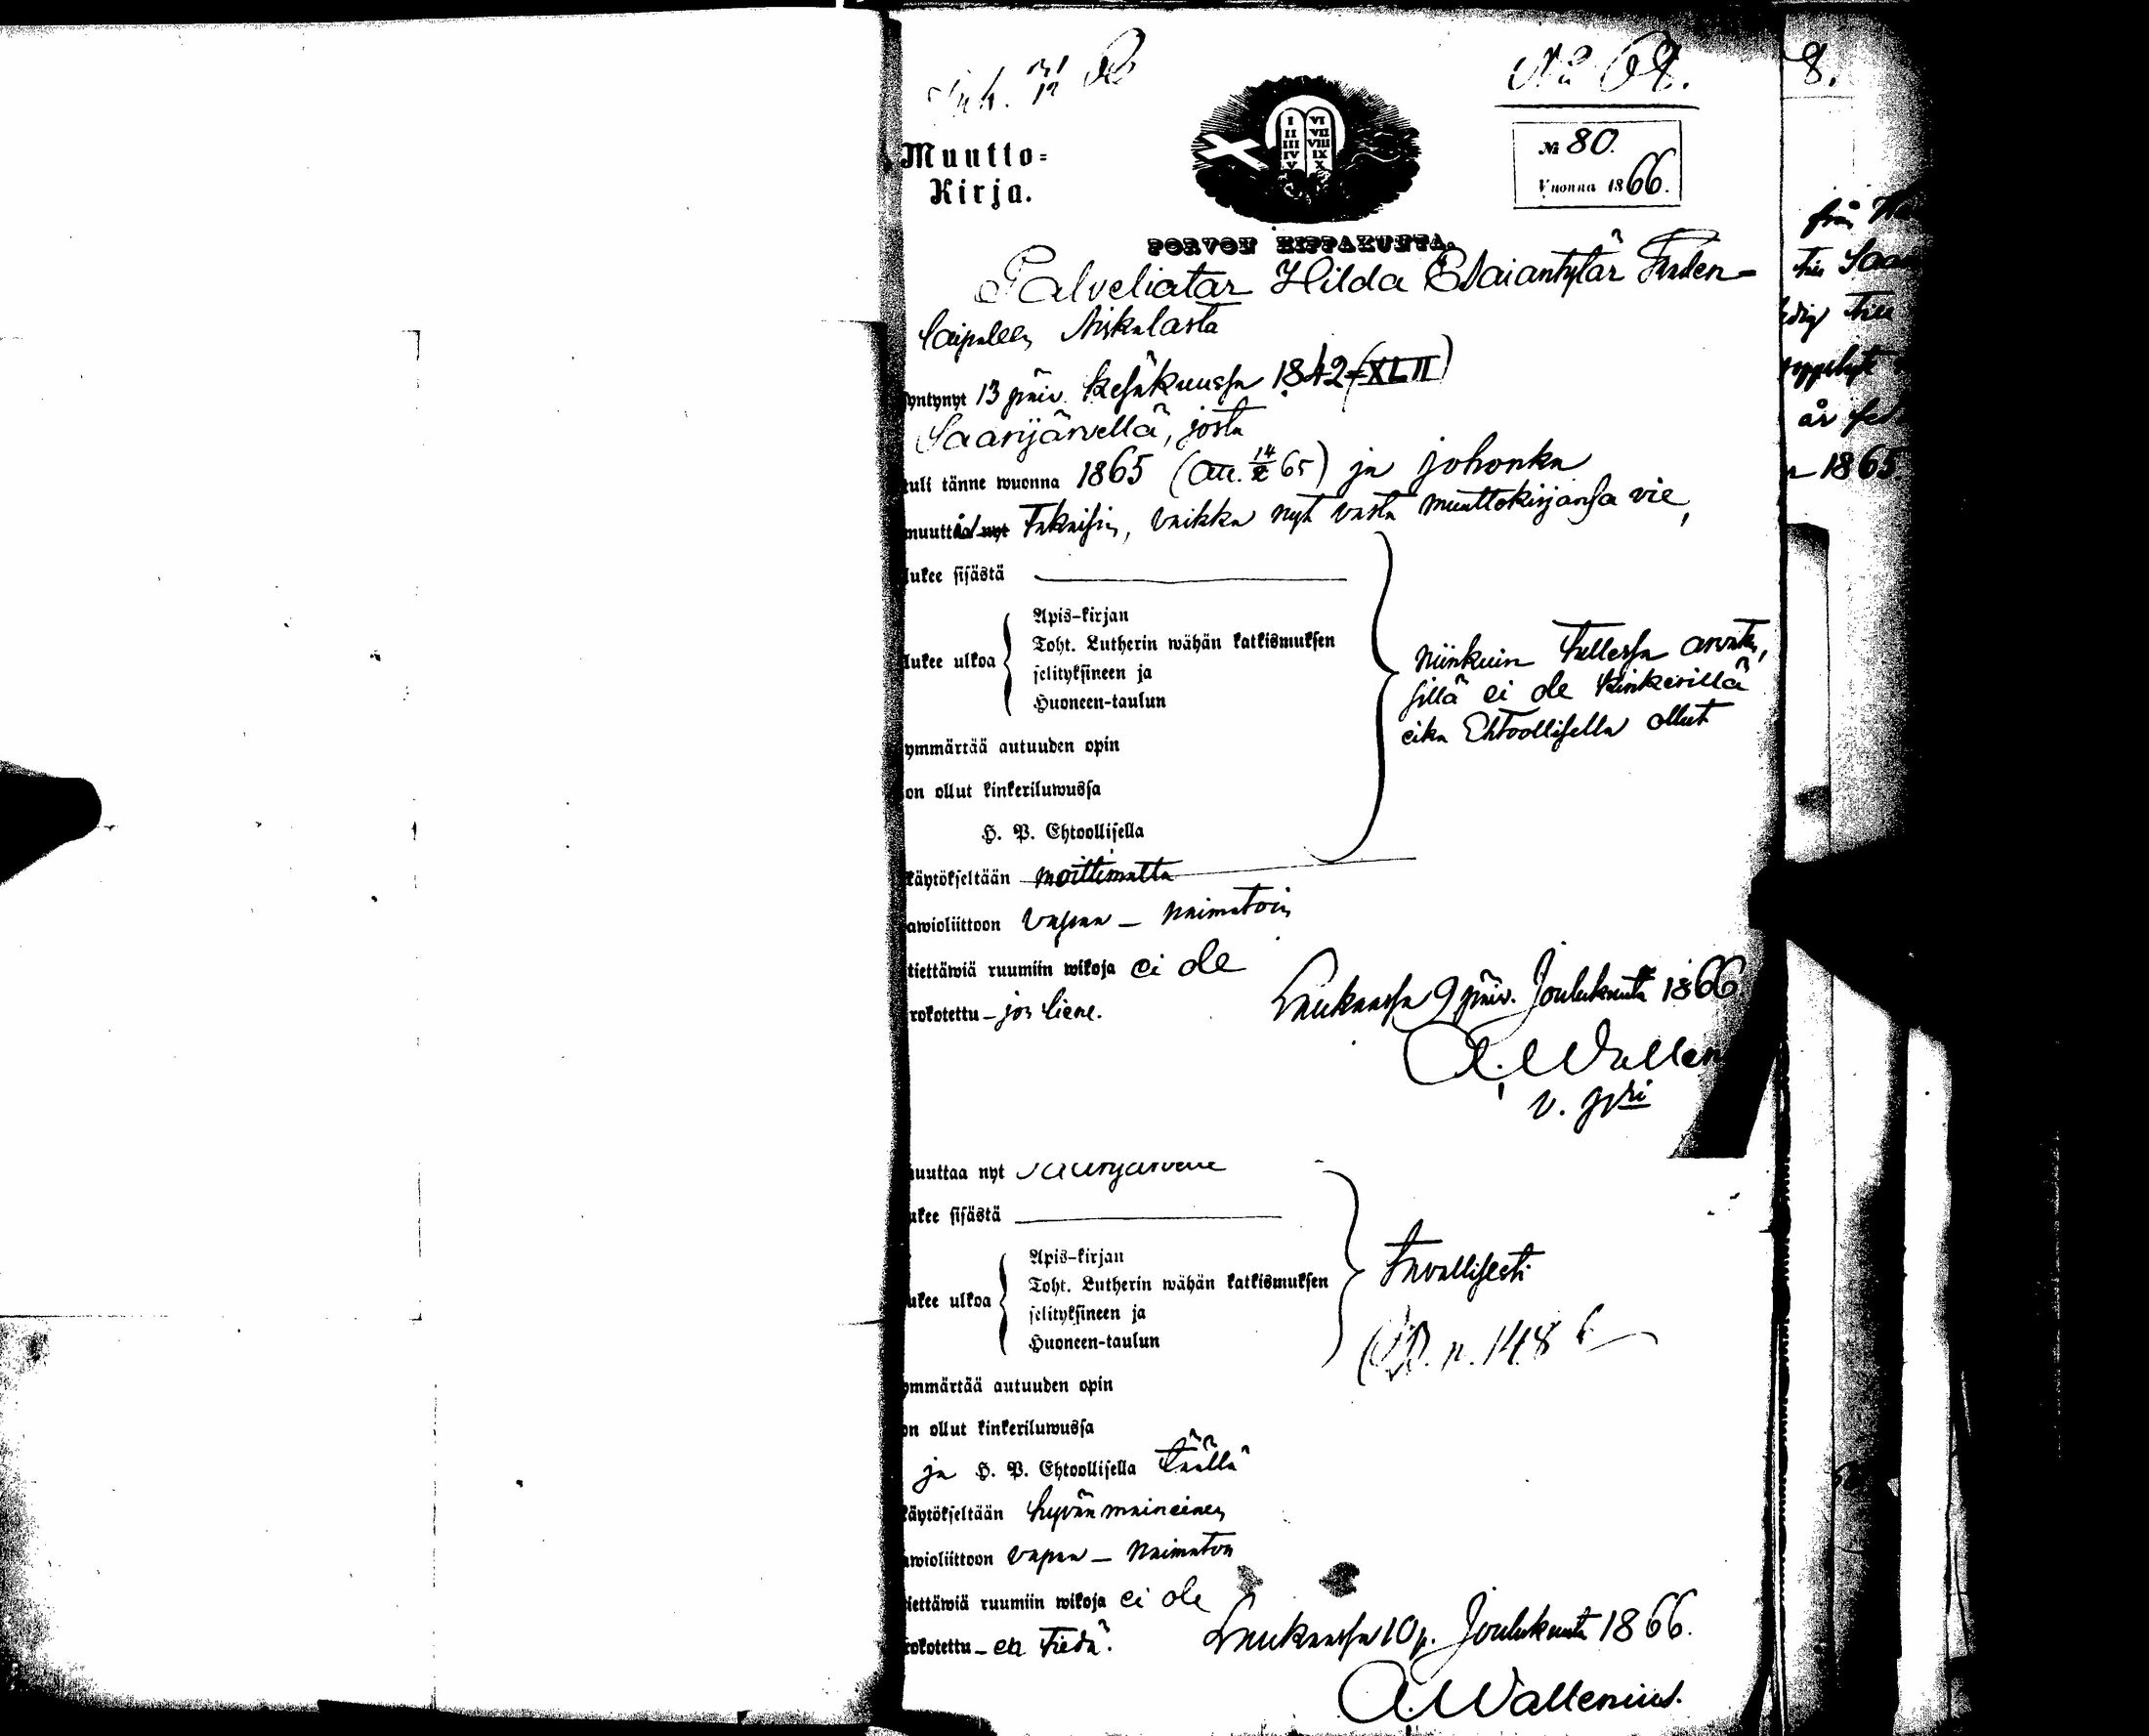 Ink. 31/12 B
No 68.
Muutto=
Kirja.
I II III IV V VI VII VIII IX X
№ 80.
Vuonna 1866.
PORVON HIPPAKUNTA.
Palveliatar Hilda Esaiantytär
syntynyt 13 päiv. Kesäkuussa 1842 (XLII)
Saarijärvellä, josta
tuli tänne wuonna 1865 (att. 14/2 65) ja johonka
muutti nyt Takaisin, vaikka nyt vasta muuttokirjansa vie,
lukee sisästä
lukee ulkoa
Apis-kirjan
Toht. Lutherin wähän katkismuksen
selityksineen ja
Huoneen-taulun
niinkuin Tullessa
sillä ei ole Kinkerillä
eikä Ehtoollisella ollut
ymmärtää autuuden opin
on ollut kinkeriluwussa
H. P. Ehtoollisella
käytökseltään moittimatta
awioliittoon vapaa – naimatoin
tiettäwiä ruumiin wikoja ei ole
rokotettu – jos liene.
Laukaassa 9 päiv. Joulukuuta 1866
A. Wallen
v. pri
muuttaa nyt Saarijärvelle
lukee sisästä
lukee ulkoa
Apis-kirjan
Toht. Lutherin wähän katkismuksen
selityksineen ja
Huoneen-taulun
tavallisesti
p. 148
ymmärtää autuuden opin
on ollut kinkeriluwussa
ja H. P. Ehtoollisella täällä
käytökseltään hyvän maineinen
awioliittoon vapaa – naimaton
tiettäwiä ruumiin wikoja ei ole
rokotettu – en tiedä.
Laukaassa 10 p. Joulukuuta 1866.
A. Wallenius.
8.
från
till Saa
ledig till
år
1865.